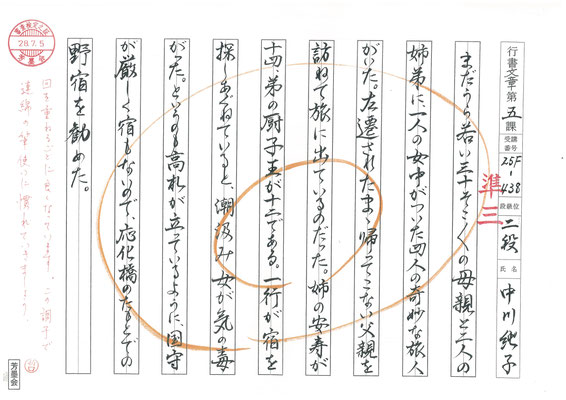 行書文章 第五課 受講番号 25F-438 段級位 二段 氏名 中川純子
準三
まだうら若い三十そこ〱の母親と二人の
姉弟に、一人の女中がついた四人の奇妙な旅人
がいた。左遷されたまゝ帰ってこない父親を
訪ねて旅に出ているのだった。姉の安寿が
十四、弟の厨子王が十二である。一行が宿を
探しあぐねていると、潮汲み女が気の毒
がった。というのも高札が立っているように、国守
が厳しく宿もないので、応化橋のたもとでの
野宿を勧めた。
回を重ねるごとに良くなっています。この調子で
連綿の筆使いに慣れていきましょう。
28.7.5
芳墨会